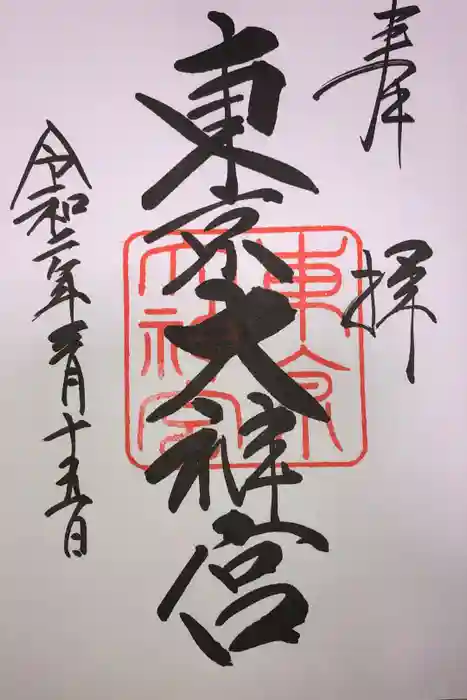 奉拝
東京大神宮
東京大神宮
令和二年三月十五日